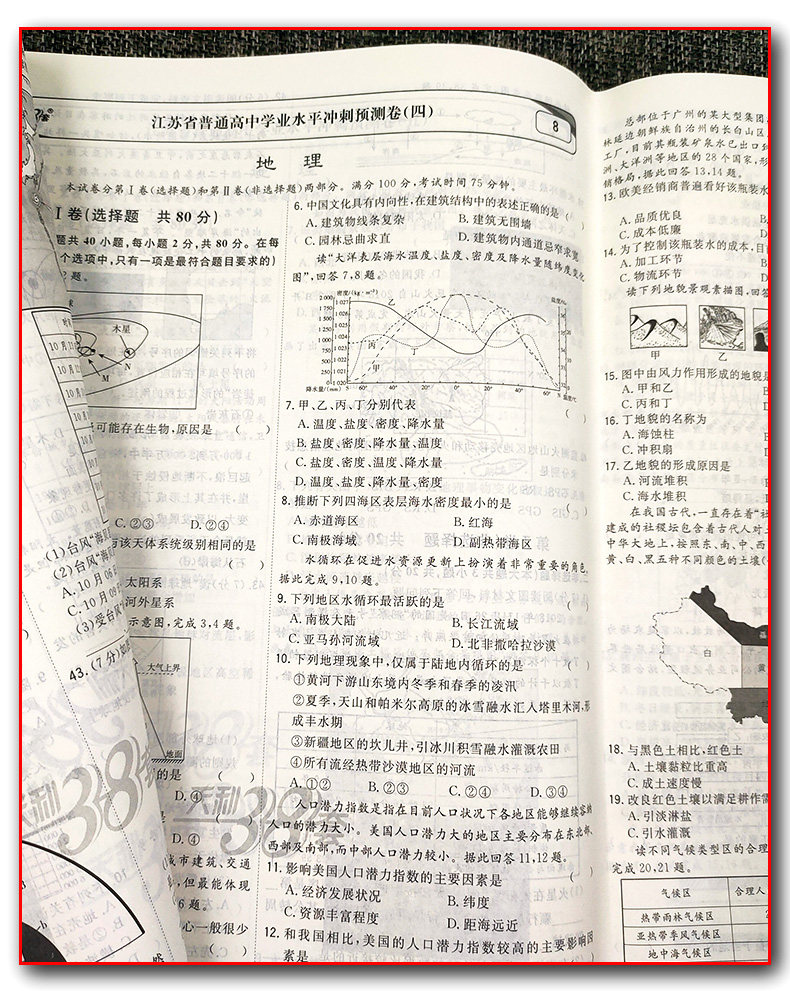 江苏省普通高中学业水平冲刺预测卷(四)
8
地 理
本试卷分第Ⅰ卷(选择题)和第Ⅱ卷(非选择题)两部分。满分100分,考试时间75分钟。
Ⅰ卷(选择题 共80分)
题共40小题,每小题2分,共80分。在每
个选项中,只有一项是最符合题目要求的)
2题。
木星
N
M
可能存在生物,原因是 ( )
C.②③ D.②④
与该天体系统级别相同的是
( )
太阳系
河外星系
示意图,完成3,4题。
大气上界
地面
的是 ( )
D.④
( )
D.④
城市建筑、交通
但最能体现
6题。
心一般很少
( )
(1)台风“海
(2)台风“海
A.10月06
C.10月09
(3)受台风
43.(7分)如
天利38套
6.中国文化具有内向性,在建筑结构中的表述正确的是( )
A.建筑物线条复杂 B.建筑无围墙
C.园林忌曲求直 D.建筑物内通道忌窄求宽
读“大洋表层海水温度、盐度、密度及降水量随纬度变化
图”,回答7,8题。
密度/(kg·m⁻³)
盐度/‰
2 000 1 027
1 750 1 026
1 500 1 025
1 250 1 024
1 000 1 023
750 1 022
500 1 021
250 1 020
甲
乙
丙
丁
降水量/(mm) S 60° 40° 20° 0° 20° 40° 60° N 温度/℃
7.甲、乙、丙、丁分别代表 ( )
A.温度、盐度、密度、降水量
B.盐度、密度、降水量、温度
C.盐度、密度、温度、降水量
D.温度、盐度、降水量、密度
8.推断下列四海区表层海水密度最小的是 ( )
A.赤道海区 B.红海
C.南极海域 D.副热带海区
水循环在促进水资源更新上扮演着非常重要的角色,
据此完成9,10题。
9.下列地区水循环最活跃的是 ( )
A.南极大陆 B.长江流域
C.亚马孙河流域 D.北非撒哈拉沙漠
10.下列地理现象中,仅属于陆地内循环的是 ( )
①黄河下游山东境内冬季和春季的凌汛
②夏季,天山和帕米尔高原的冰雪融水汇入塔里木河,形
成丰水期
③新疆地区的坎儿井,引冰川积雪融水灌溉农田
④所有流经热带沙漠地区的河流
A.①② B.②③ C.②④ D.③④
人口潜力指数是指在目前人口状况下各地区能够继续容纳
人口的潜力大小。美国人口潜力大的地区主要分布在东北部、
西部及南部,而中部人口潜力较小。据此回答11,12题。
11.影响美国人口潜力指数的主要因素是 ( )
A.经济发展状况 B.纬度
C.资源丰富程度 D.距海远近
12.和我国相比,美国的人口潜力指数较高的主要影响因
素是 ( )
总部位于广州的某大型集团
林延边朝鲜族自治州的长白山区
工厂,目前其瓶装矿泉水已出口
洲、大洋洲等地区的28个国家,形
销格局,据此回答13,14题。
13.欧美经销商普遍看好该瓶装水
A.品质优良
C.成本低廉
14.为了控制该瓶装水的成本,目
A.加工环节
C.物流环节
读下列地貌景观素描图,回答
甲 乙
15.图中由风力作用形成的地貌是
A.甲和乙
C.丙和丁
16.丁地貌的名称为
A.海蚀柱
C.冲积扇
17.乙地貌的形成原因是
A.河流堆积
C.海水堆积
在我国古代,一直存在着“社
建成的社稷坛包含着古代人对土
中华大地上,按照东、南、中、西
黄、白、黑五种不同颜色的土壤(
白
黄
18.与黑色土相比,红色土
A.土壤黏粒比重高
C.成土速度慢
19.改良红色土壤以满足耕作需
A.引淡淋盐
C.引水灌溉
读不同气候类型区的合理
完成20,21题。
气候区 合理人
热带雨林气候区
亚热带季风气候区
地中海气候区